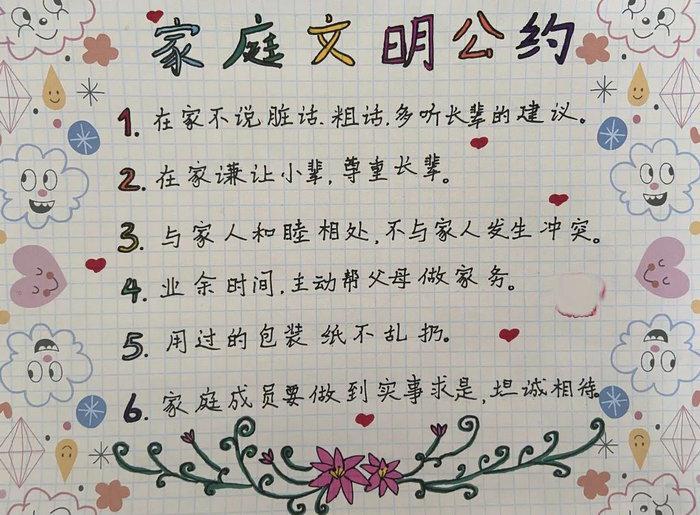 家庭文明公约
1. 在家不说脏话、粗话,多听长辈的建议。
2. 在家谦让小辈,尊重长辈。
3. 与家人和睦相处,不与家人发生冲突。
4. 业余时间,主动帮父母做家务。
5. 用过的包装纸不乱扔。
6. 家庭成员要做到实事求是,坦诚相待。